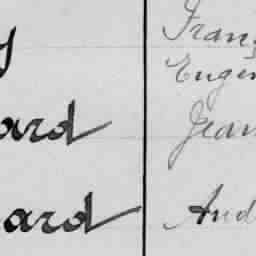 Fran
Eugen
ard Jean
ard And